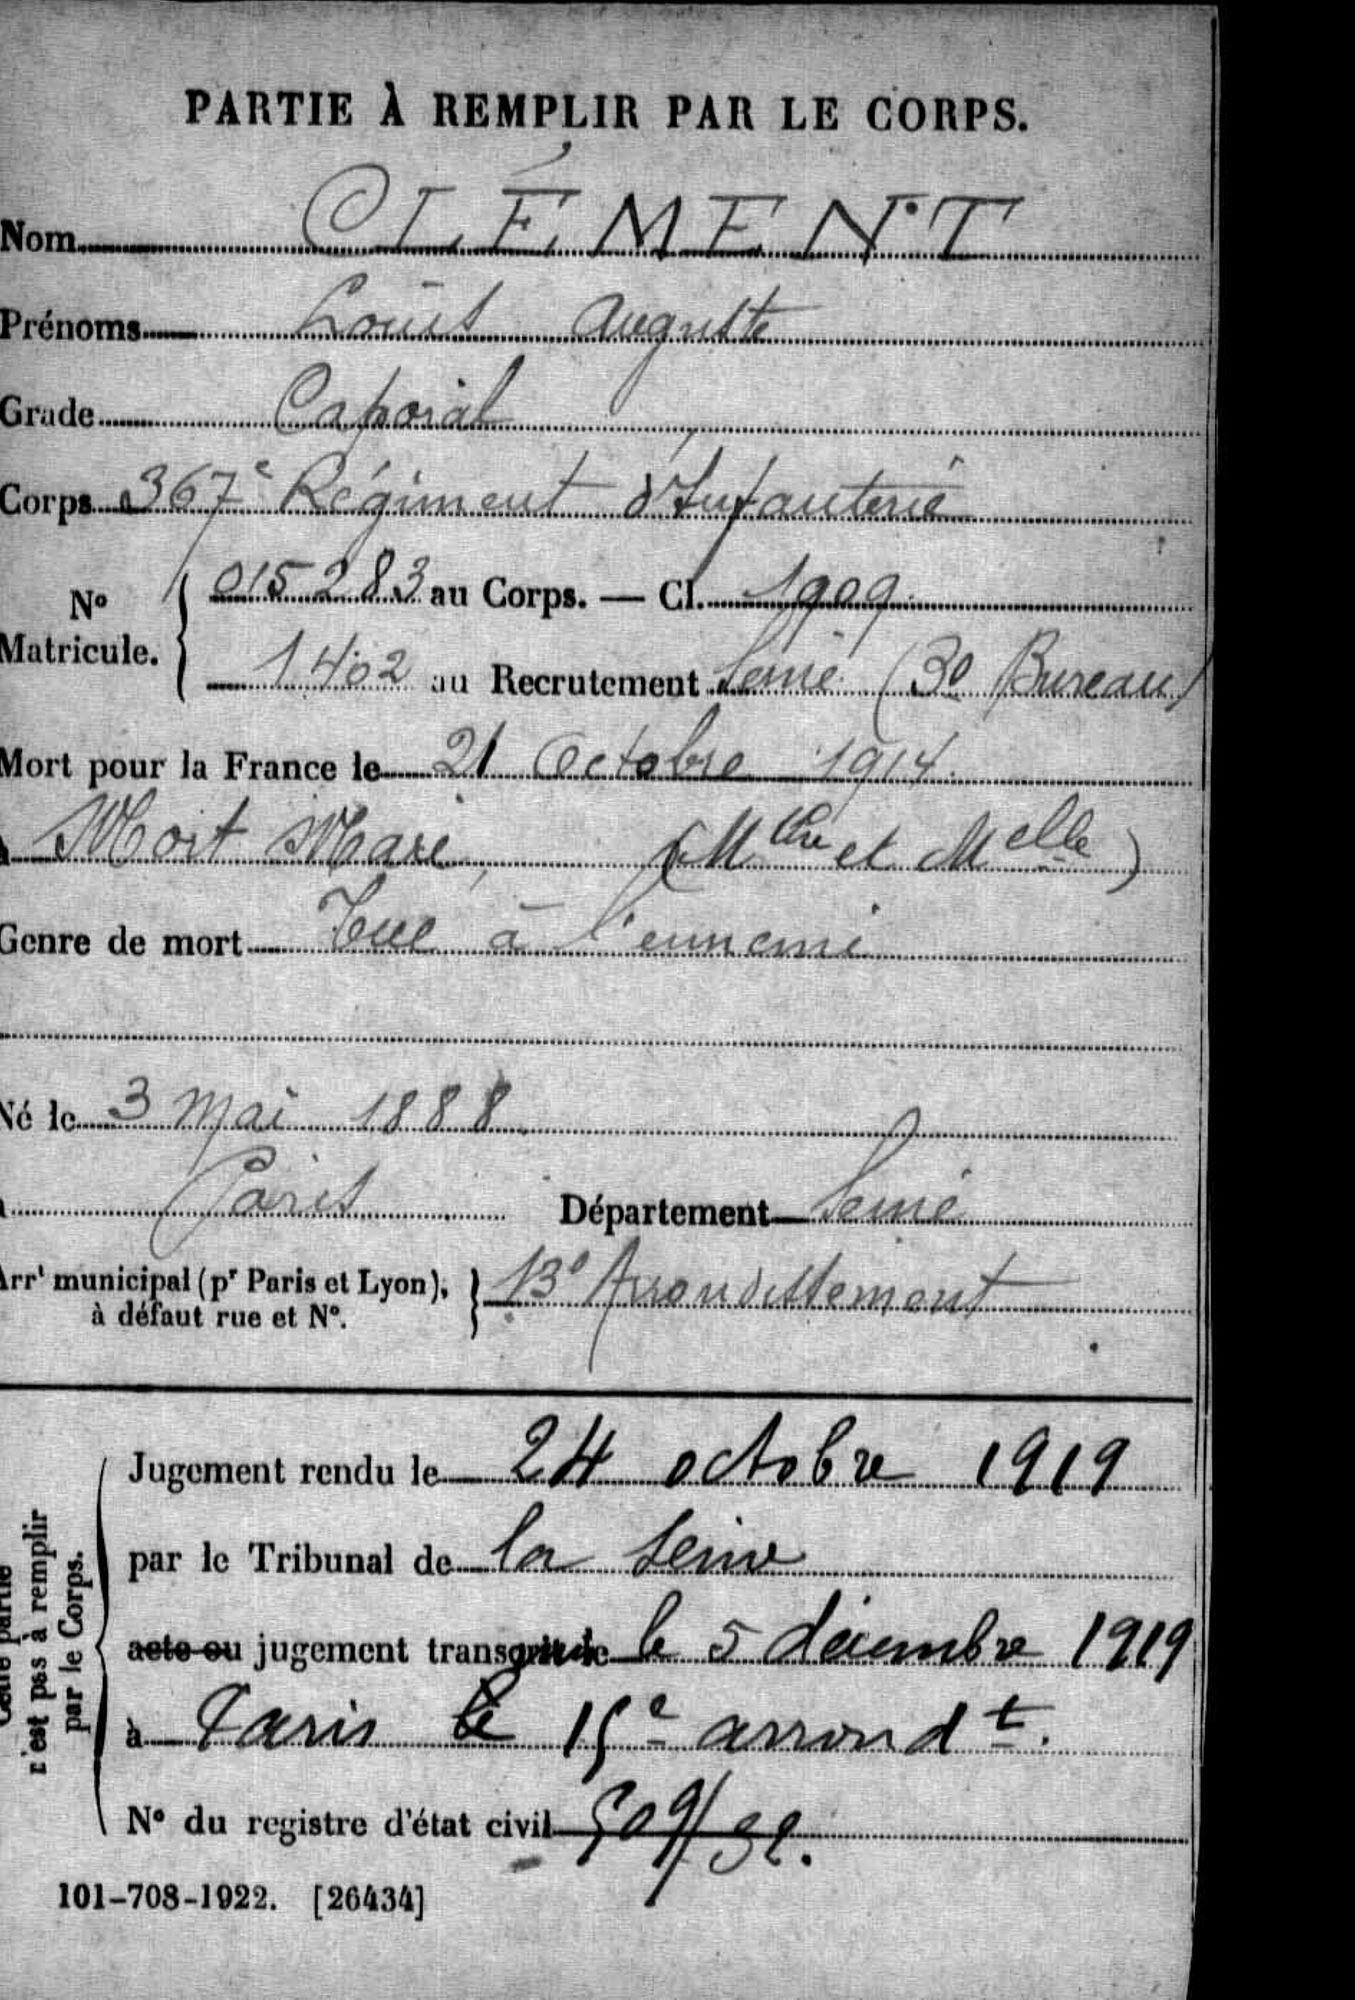 PARTIE À REMPLIR PAR LE CORPS.
Nom CLÉMENT
Prénoms Louis Auguste
Grade Caporal
Corps 367e Régiment d'Infanterie
No Matricule. 015283 au Corps. — Cl. 1909
1402 au Recrutement Seine (3e Bureau)
Mort pour la France le 21 Octobre 1914.
à Mort Mare, (Mthe et Melle)
Genre de mort Tué à l'ennemi
Né le 3 mai 1888
à Paris Département Seine
Arrt municipal (pr Paris et Lyon), à défaut rue et No. 13e Arrondissement
Cette partie n'est pas à remplir par le Corps.
Jugement rendu le 24 octobre 1919
par le Tribunal de la Seine
acte ou jugement transcrit le le 5 décembre 1919
à Paris le 15e arrondt.
No du registre d'état civil 509/32.
101-708-1922. [26434]